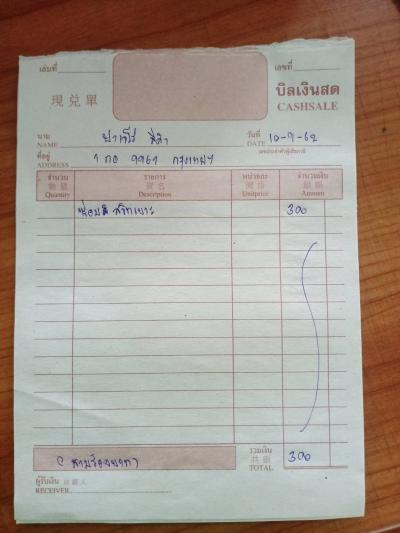 เล่มที่ เลขที่
現兑單 บิลเงินสด
CASHSALE
นาม
NAME วันที่
DATE 10-9-62
ที่อยู่
ADDRESS 1 กอ 9967 กรุงเทพฯ
จำนวน รายการ หน่วยละ จำนวนเงิน
數量 貨名 價格 銀碼
Quantity Description Unitprice Amount
300
(สามร้อยบาท) รวมเงิน
共銀
TOTAL 300
ผู้รับเงิน 收銀人
RECEIVER